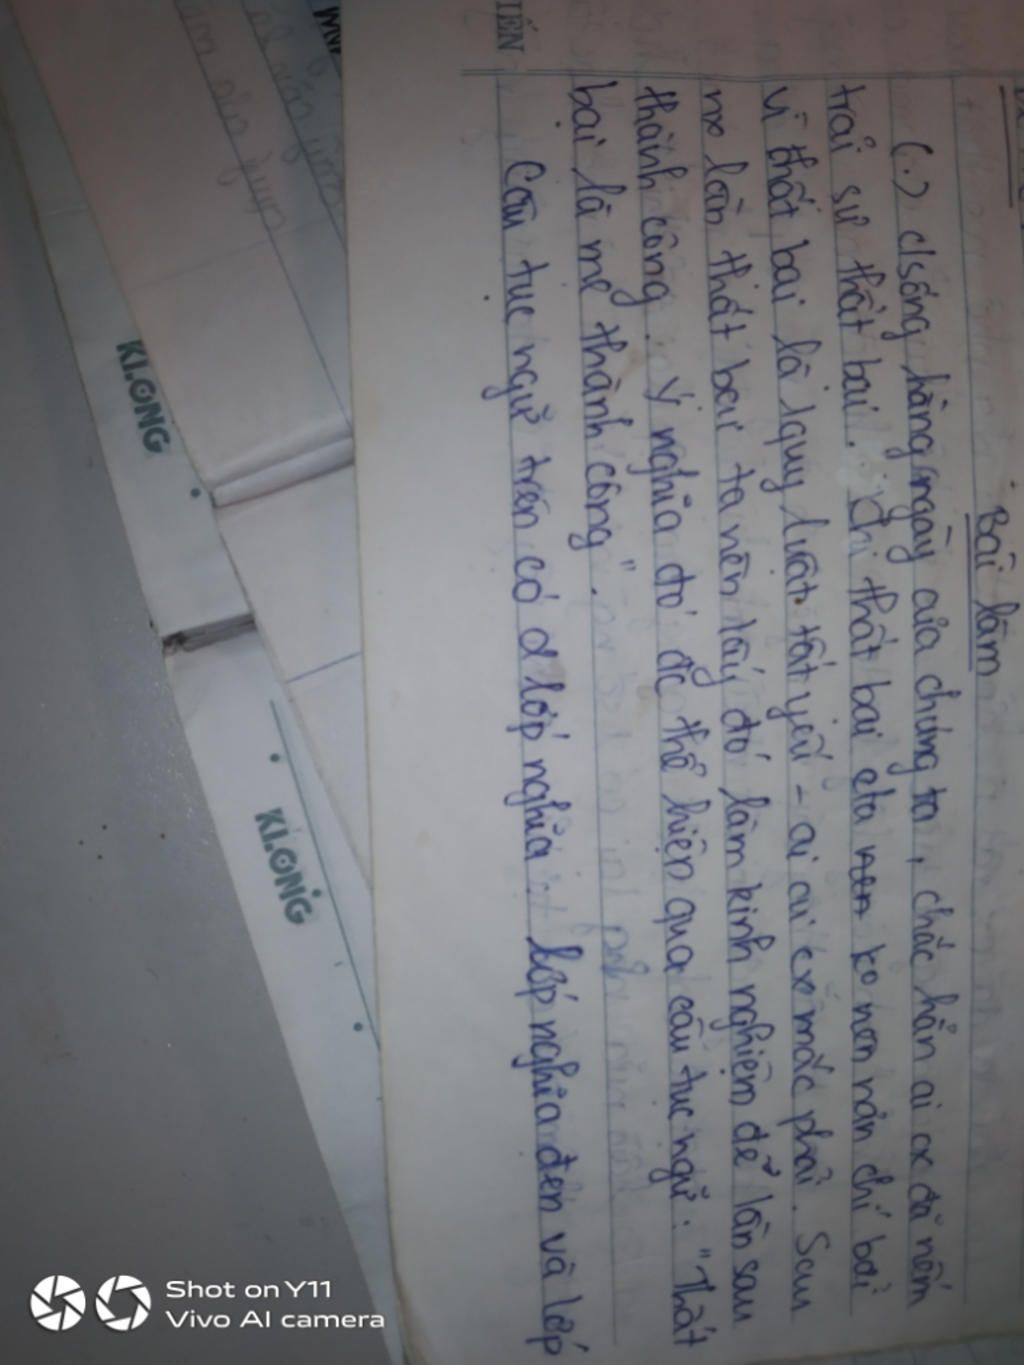 Bài làm
(.) c/sống hằng ngày của chúng ta, chắc hẳn ai cx đã nếm
trải sự thất bại. Khi thất bại cta nen ko nên nản chí bởi
vì thất bại là 1 quy luật tất yếu - ai ai cx mắc phải. Sau
mx lần thất bại ta nên lấy đó làm kinh nghiệm để lần sau
thành công. Ý nghĩa đó đc thể hiện qua câu tục ngữ: "Thất
bại là mẹ thành công".
Câu tục ngữ trên có 2 lớp nghĩa: lớp nghĩa đen và lớp
IẾN
KLONG
KLONG
Shot on Y11
Vivo AI camera